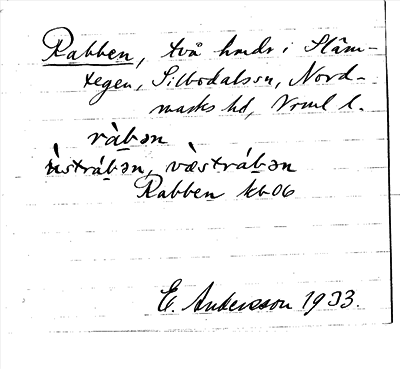 Rabben, två hmdr i Släm-
tegen, Silbodals sn, Nord-
marks hd, Vrml l.
ràb̲ən
ùstráb̲ən, væ̀stráb̲ən
Rabben kb 06
E. Andersson 1933.